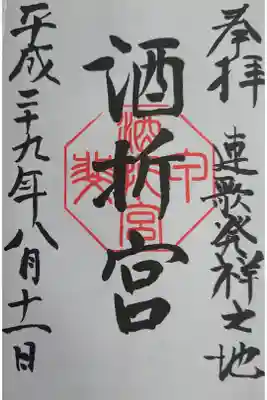 奉拝
連歌発祥之地
酒折宮
平成二十九年八月十一日